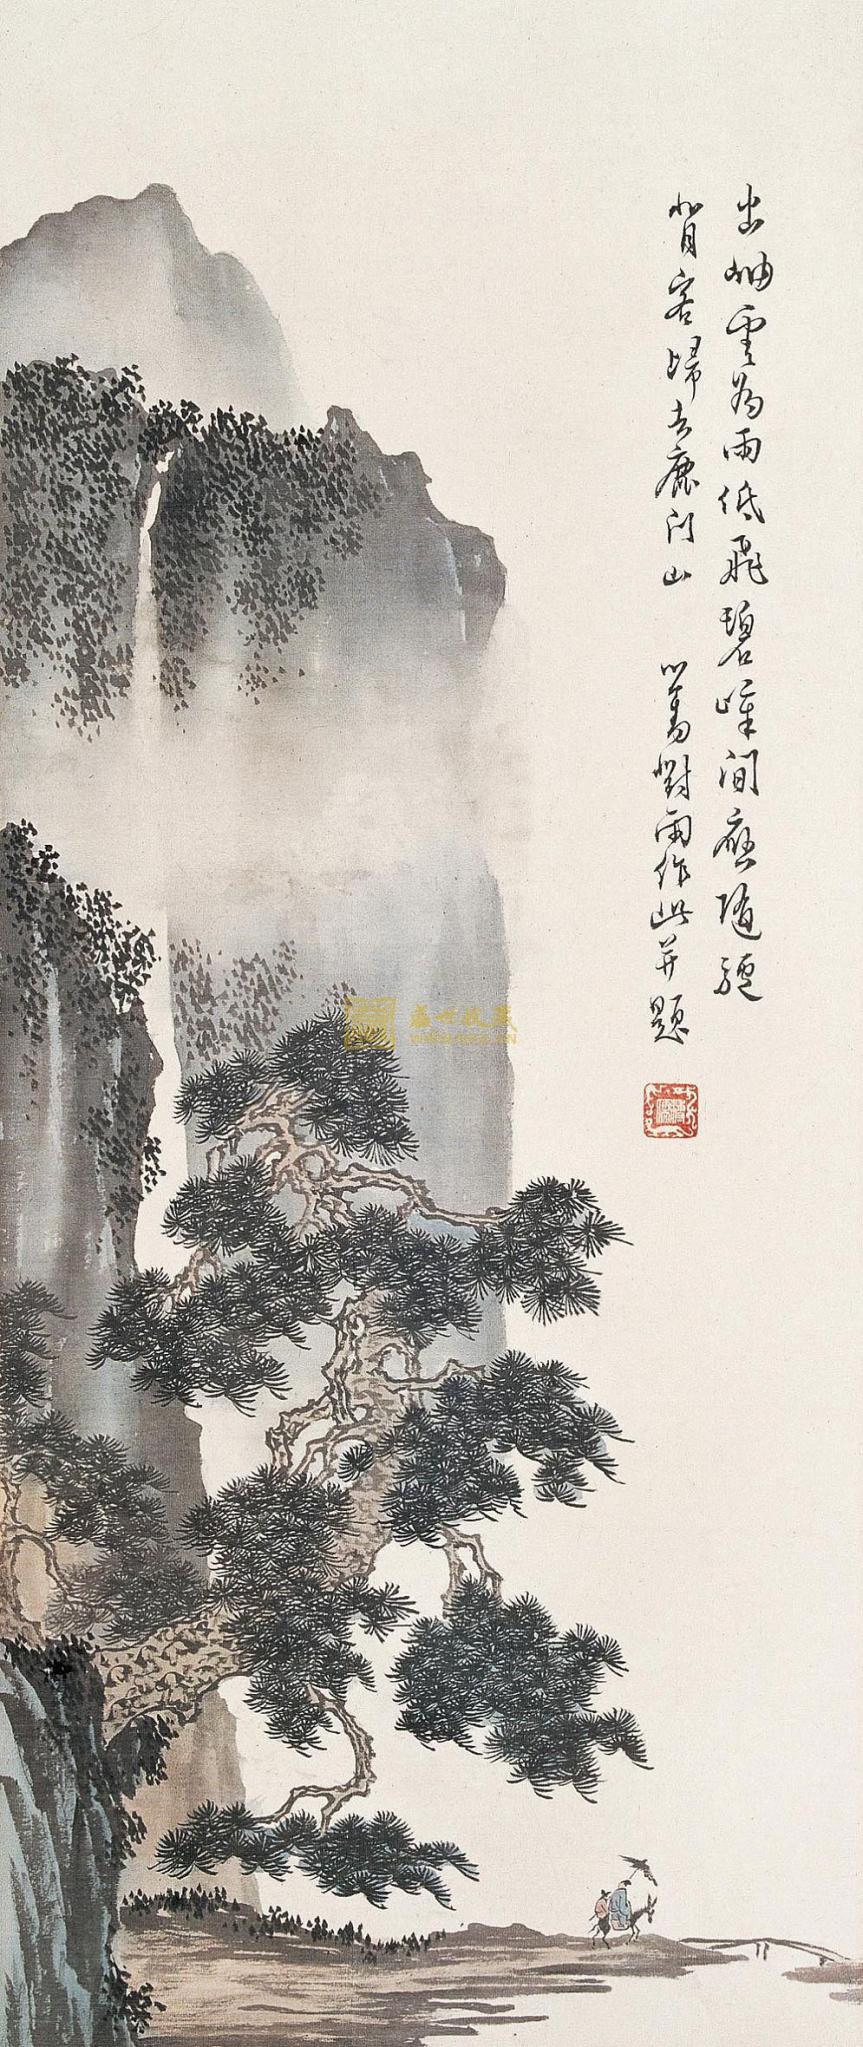 出岫雲為雨低飛碧嶂間應隨驢
背客歸去鹿門山 心畬對雨作此并題
盛世收藏